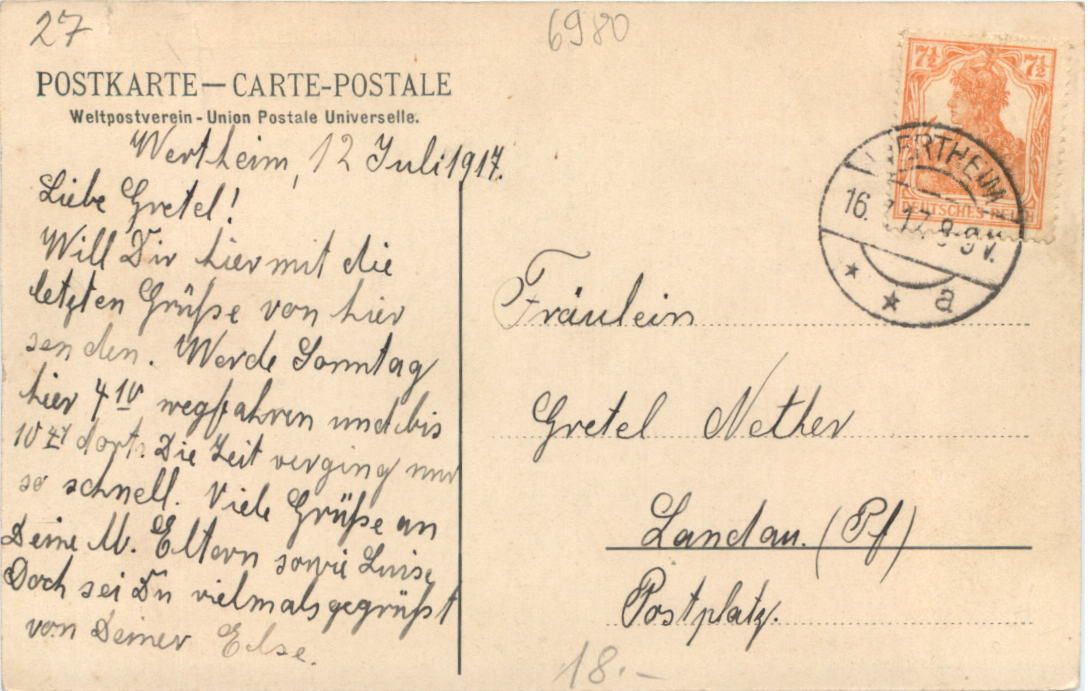 27
6980
POSTKARTE — CARTE-POSTALE
Weltpostverein - Union Postale Universelle.
Wertheim, 12 Juli 1917.
Liebe Gretel!
Will Dir hiermit die
letzten Grüße von hier
senden. Werde Sonntag
hier 4 10 wegfahren und bis
10 dort. Die Zeit verging nur
so schnell. Viele Grüße an
Deine lb. Eltern sowie Luise
Doch sei Du vielmals gegrüßt
von Deiner Else.
7½ 7½
DEUTSCHES REICH
WERTHEIM
16. 17. 8-9V.
* * a
Fräulein
Gretel Nether
Landau. (Pf)
Postplatz.
18.-